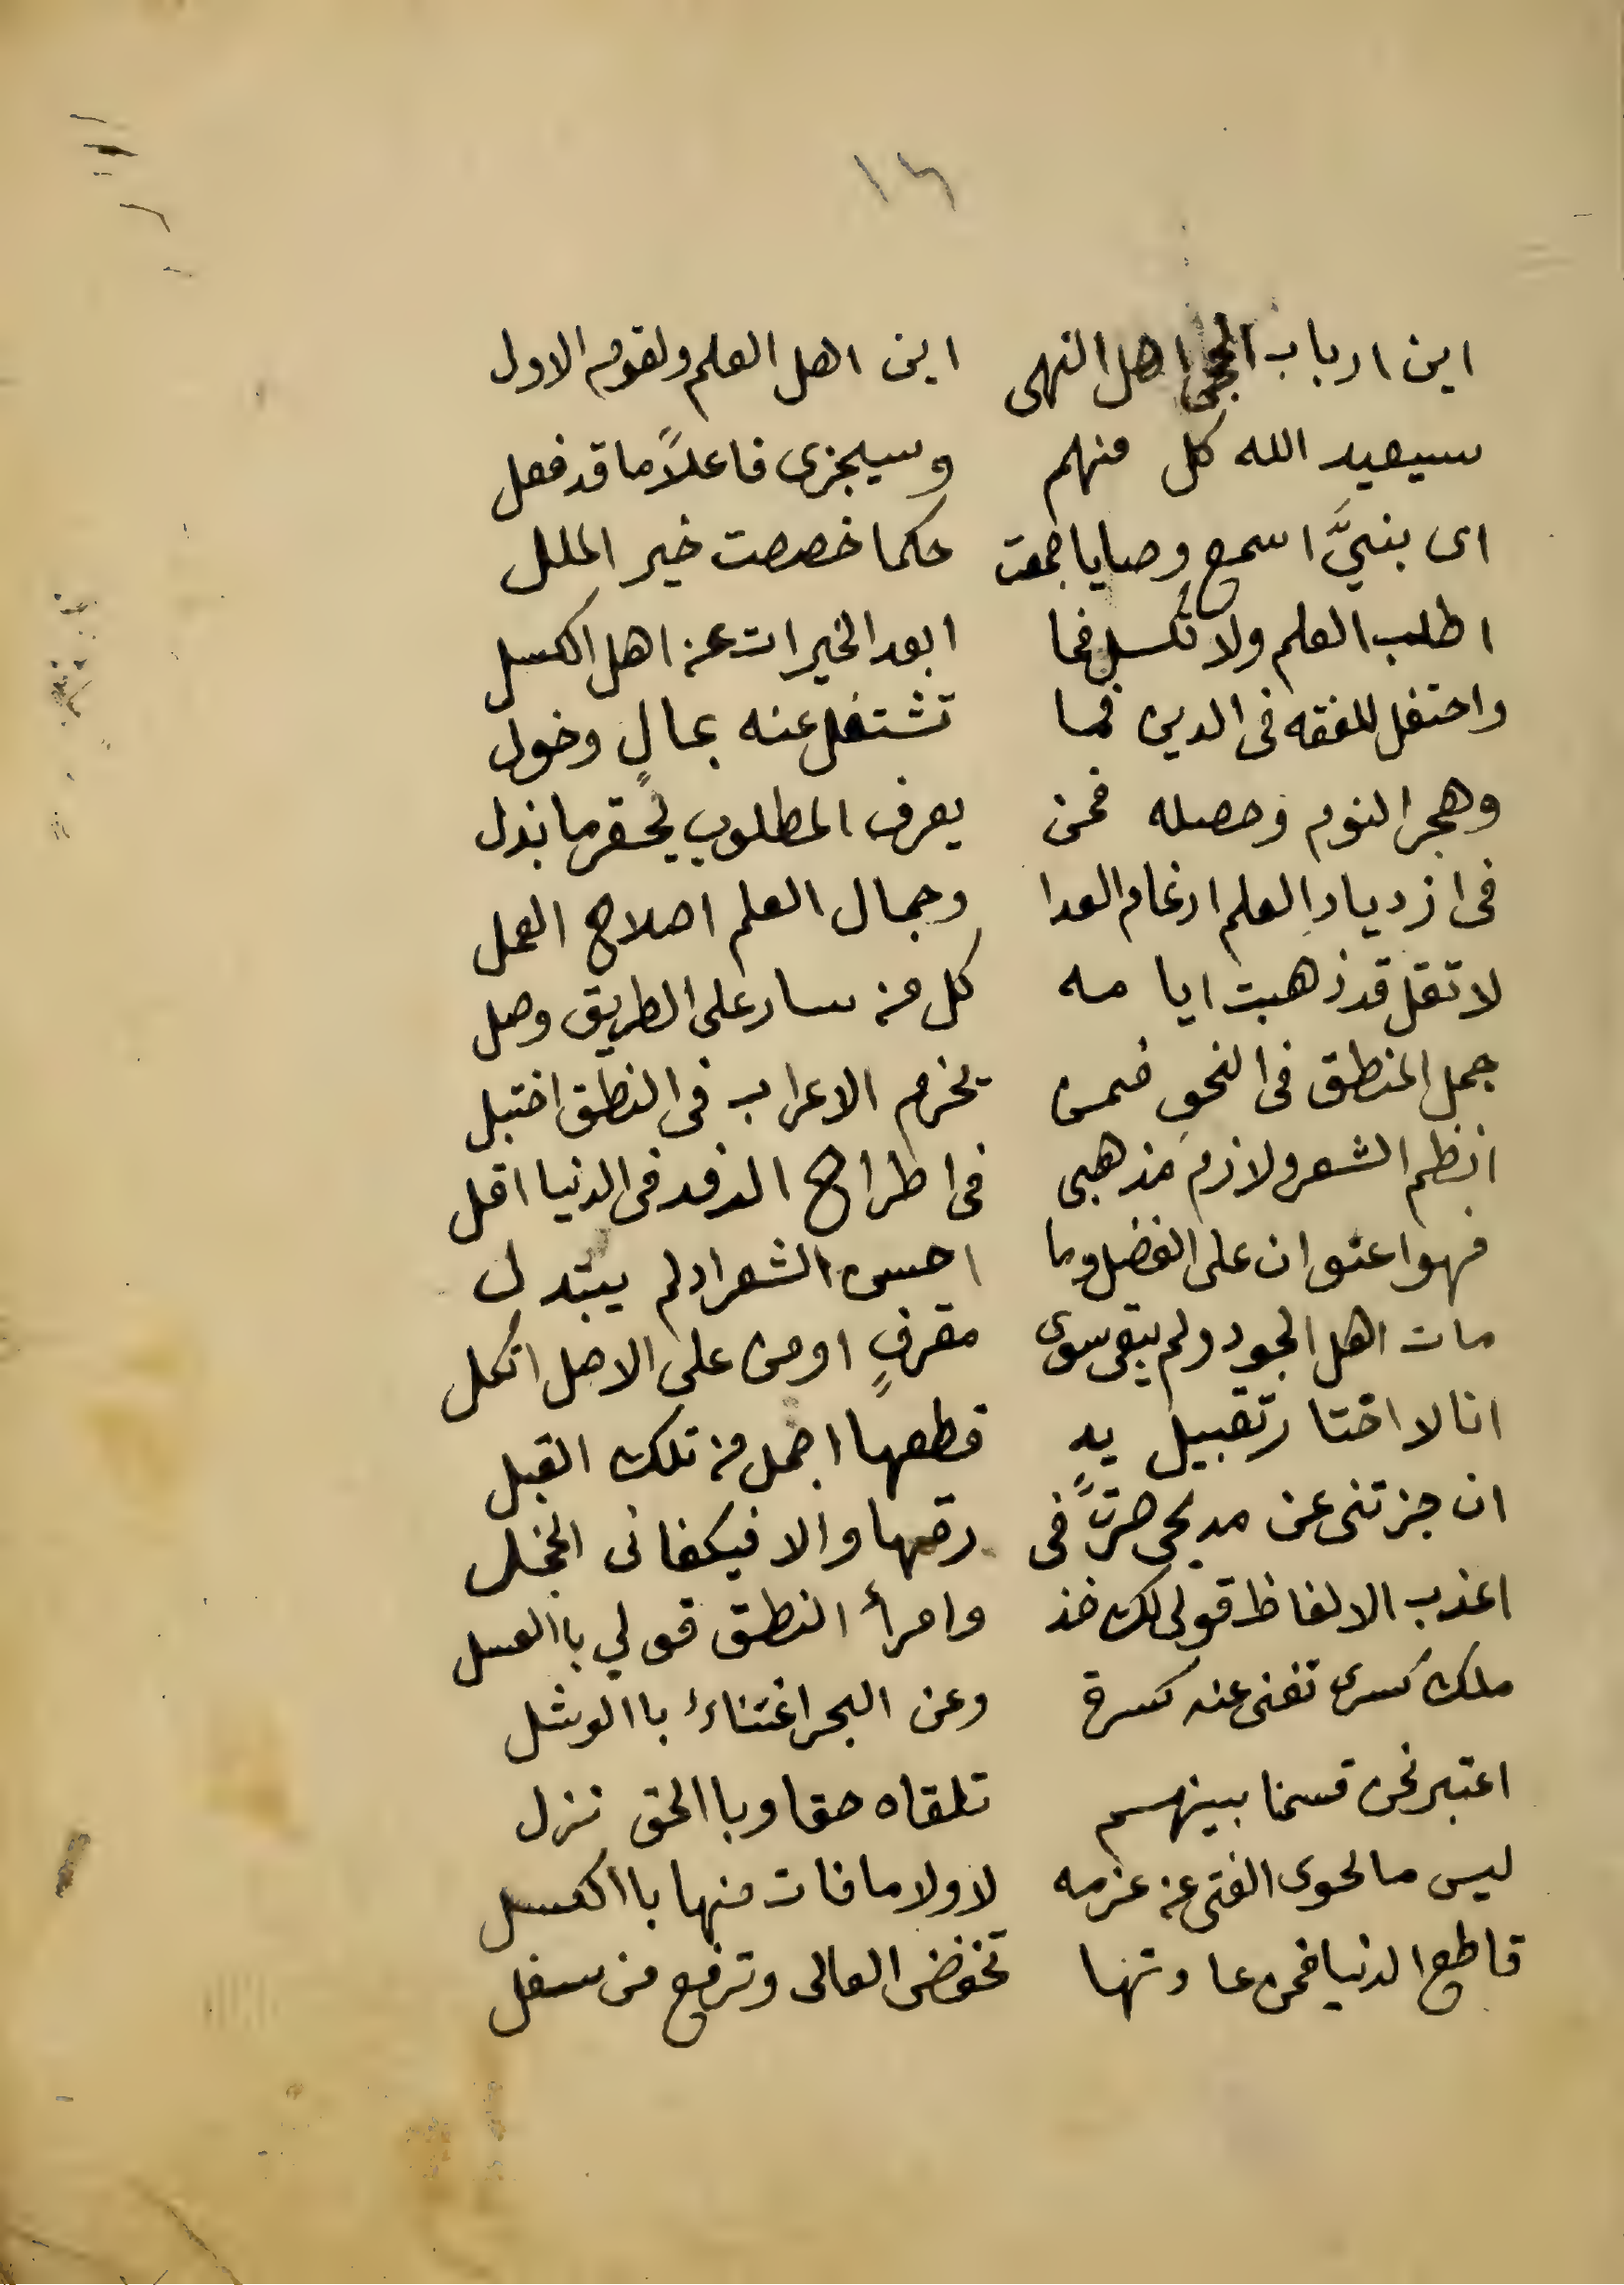 ١٢
اين ارباب الحجى اهل النهى اين اهل العلم ولقوم الاول
سيعيد الله كل منهم وسيجزى فاعلاً ما قد فعل
اى بنيَّ اسمع وصايا جمعت حكما خصصت خير الملل
اطلب العلم ولا تكسل فما ابعد الخيرات عن اهل الكسل
واحتفل للفقه فى الدين فما تشتغل عنه بمالٍ وخول
وهجر النوم وحصله فمن يعرف المطلوب يحقر ما بذل
فى ازدياد العلم ارغام العدا وجمال العلم اصلاح العمل
لا تقل قد ذهبت ايامه كل من سار على الطريق وصل
جمل المنطق فى النحو فمن يخرم الاعراب فى النطق اختبل
انظم الشعر ولازم مذهبى فى اطراح الرفد فى الدنيا اقل
فهوا عنوان على الفضل وما احسن الشعر اذ لم يبتدل
مات اهل الجود ولم يبقى سوى مقرفٍ او من على الاصل اتكل
انا لا اختار تقبيل يدٍ قطعها اجمل من تلك القبل
ان جزتنى عن مديحى صرتً فى رقها والا فيكفانى الخجل
اعذب الالفاظ قولى لك خذ وامرأ النطق قولي باالعسل
ملك كسرى تغنى عنه كسرة وعن البحر اغتناءُ باالوشل
اعتبر نحن قسمنا بينهم تلقاه حقا وباالحق نزل
ليس ما لحوى الفتى عن عزمه لا ولا ما فات منها باالكسل
قاطع الدنيا فمن عادتها تخفض العالى وترفع من سفل